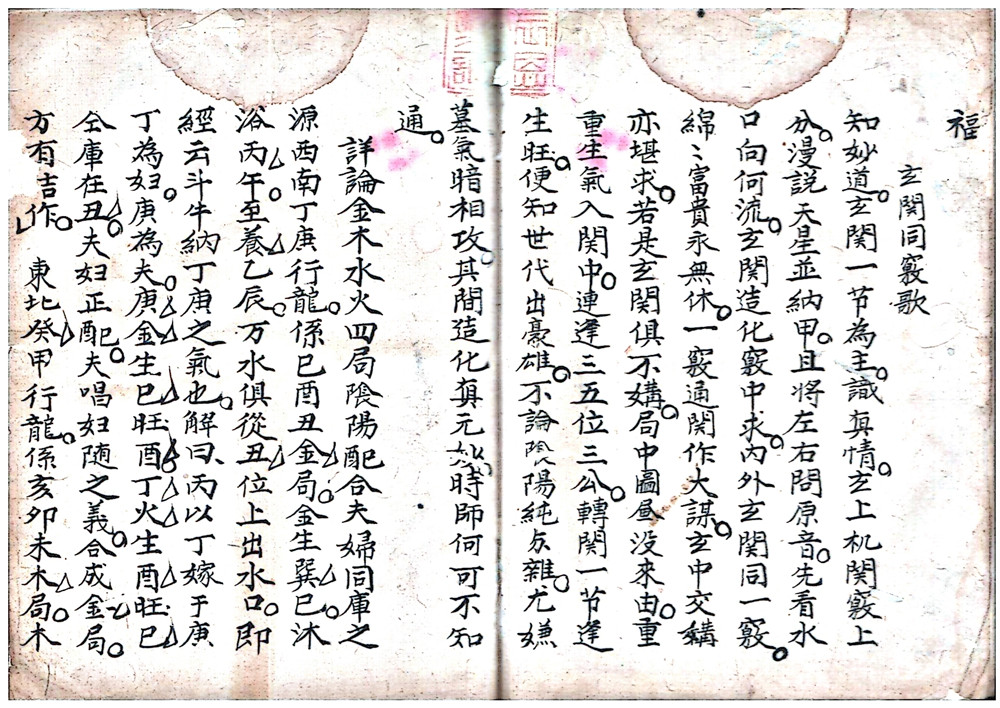 福
玄関同竅歌
知妙道。玄関一节為主。識真情。玄上机関竅上
分。漫説天星並納甲。且将左右問原音。先看水
口向何流。玄関造化竅中求。内外玄関同一竅。
綿〻富貴永無休。一竅通関作大謀。玄中交媾
亦堪求。若是玄関俱不媾。局中圖* 没来由。重
重生氣入関中。連逢三五位三公。轉関一节逢
生旺。便知世代出豪雄。不論陰陽純与雜。尤嫌
墓氣暗相攻。其間造化真元妙。時師何可不知
通。
詳論金木水火四局陰陽配合夫婦同庫之
源西南丁庚行龍。係巳酉丑金局。金生巽巳。沐
浴丙午。至養乙辰。万水俱從丑位上出水口。即
經云斗牛納丁庚之氣也。解曰、丙以丁嫁于庚
丁為妇。庚為夫。庚金生巳旺酉。丁火生酉旺巳
仝庫在丑。夫妇正配。夫唱妇随之義。合成金局。
方有吉作。東北癸甲行龍。係亥卯未木局。木